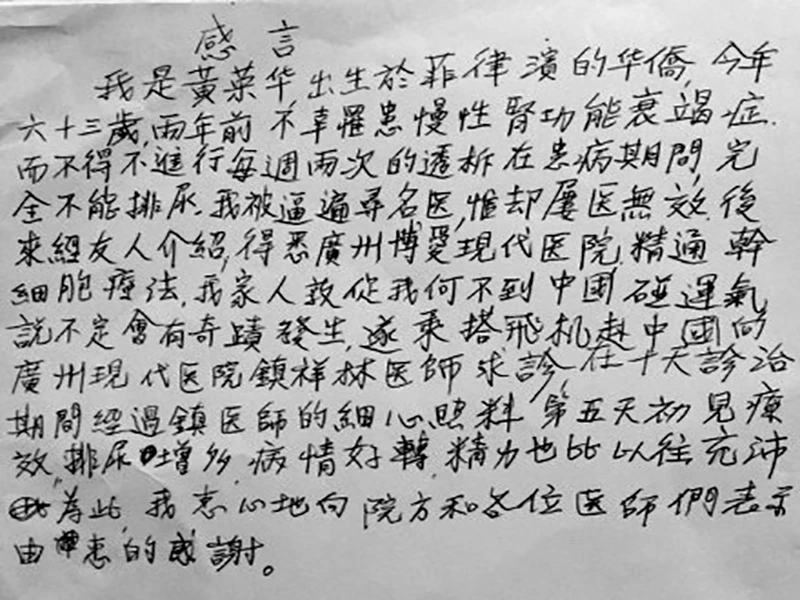 感言
我是黃葉华,出生於菲律濱的华僑,今年
六十三歲,兩年前不幸罹患慢性腎功能衰竭症.
而不得不進行每週兩次的透析在患病期間,完
全不能排尿.我被逼遍尋名医,惟却屢医無效.後
來經友人介紹,得悉廣州博愛現代医院,精通幹
細胞療法,我家人敦促我何不到中國碰運氣
說不定會有奇蹟發生,遂乘搭飛机赴中國的
廣州現代医院鎮祥林医師求診在十天診治
期間經過鎮医師的細心照料第五天初見療
效,排尿增多,病情好轉,精力也比以往充沛
為此,我衷心地向院方和各位医師們表示
由衷的感謝。